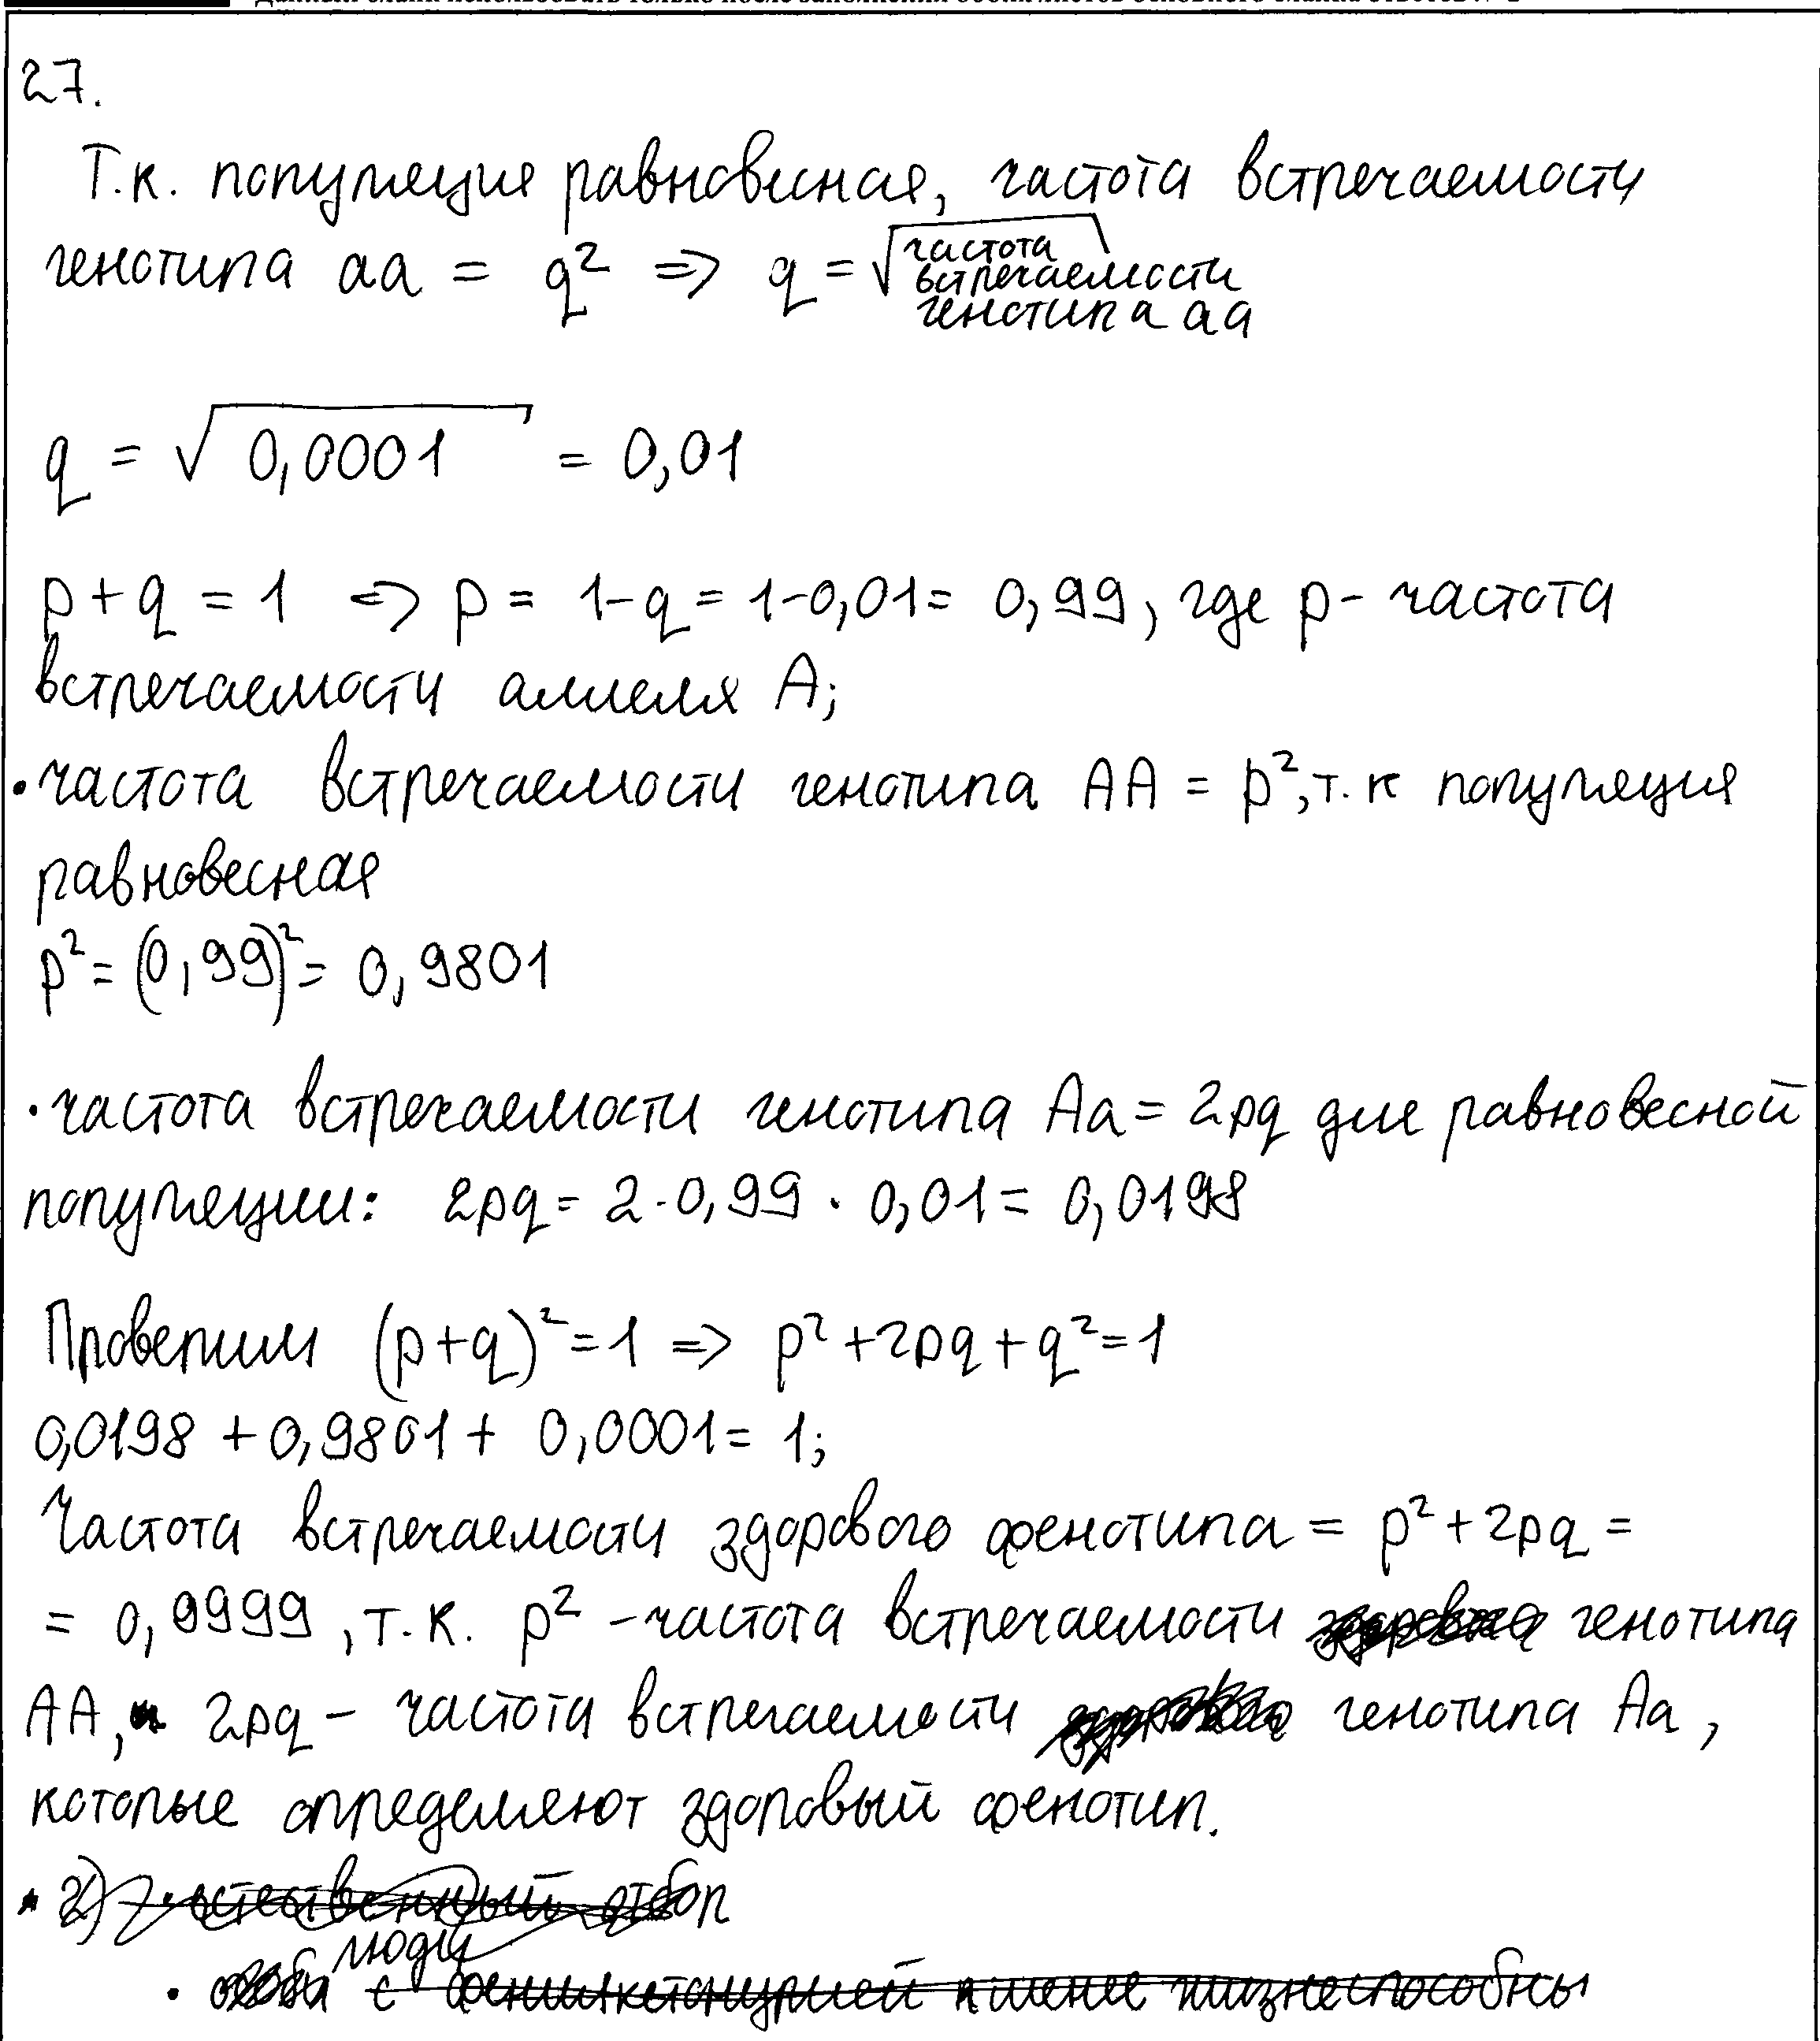 27.
Т.к. популяция равновесная, частота встречаемости
генотипа аа = q² => q = √частота
встречаемости
генотипа аа
q = √0,0001 = 0,01
p + q = 1 => p = 1-q = 1-0,01 = 0,99, где p - частота
встречаемости аллеля А;
• частота встречаемости генотипа АА = p², т.к популяция
равновесная
p² = (0,99)² = 0,9801
• частота встречаемости генотипа Аа = 2pq для равновесной
популяции: 2pq = 2 · 0,99 · 0,01 = 0,0198
Проверим (p+q)² = 1 => p² + 2pq + q² = 1
0,0198 + 0,9801 + 0,0001 = 1;
Частота встречаемости здорового фенотипа = p² + 2pq =
= 0,9999, т.к. p² - частота встречаемости генотипа
АА, 2pq - частота встречаемости генотипа Аа,
которые определяют здоровый фенотип.
2) естественный отбор
люди
• с фенилкетонурией менее жизнеспособны